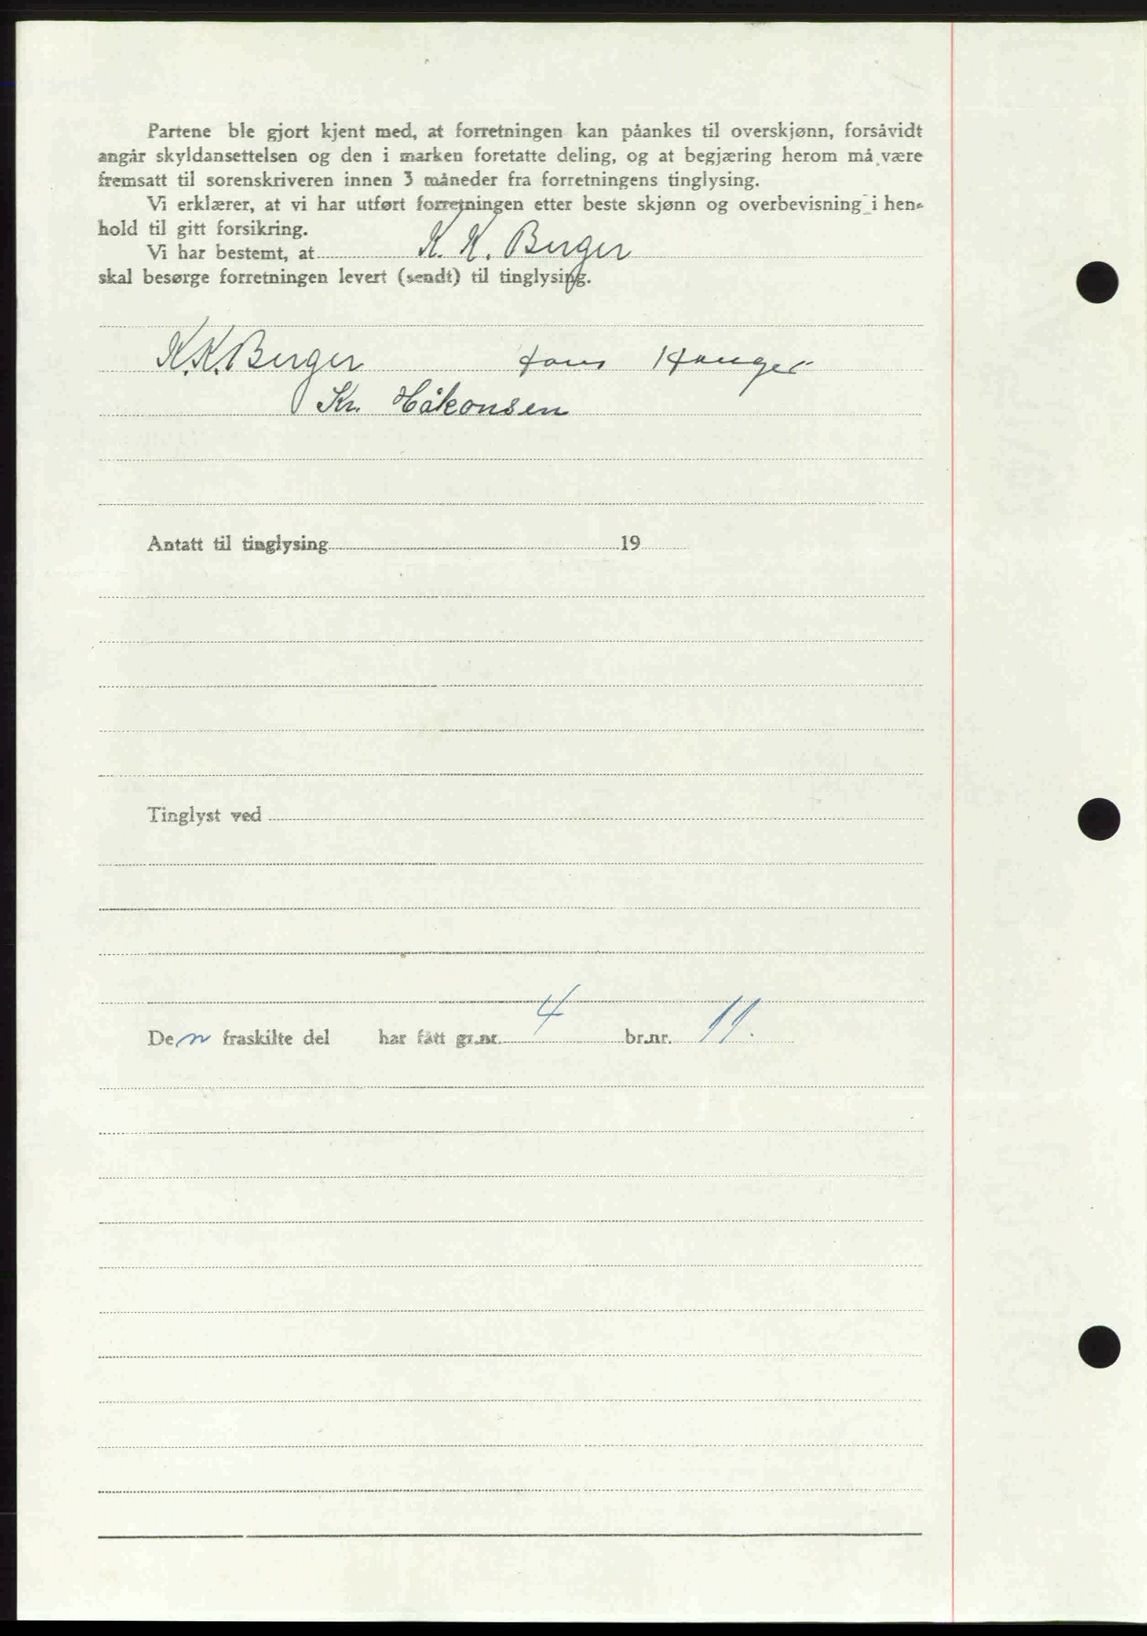 Partene ble gjort kjent med, at forretningen kan påankes til overskjønn, forsåvidt
angår skyldansettelsen og den i marken foretatte deling, og at begjæring herom må være
fremsatt til sorenskriveren innen 3 måneder fra forretningens tinglysing.
Vi erklærer, at vi har utført forretningen etter beste skjønn og overbevisning i hen-
hold til gitt forsikring.
Vi har bestemt, at K. K. Berger
skal besørge forretningen levert (sendt) til tinglysing.
K. K. Berger Hans Hauger
Kr. Håkonsen
Antatt til tinglysing 19
Tinglyst ved
Den fraskilte del har fått gr.nr. 4 br.nr. 11.